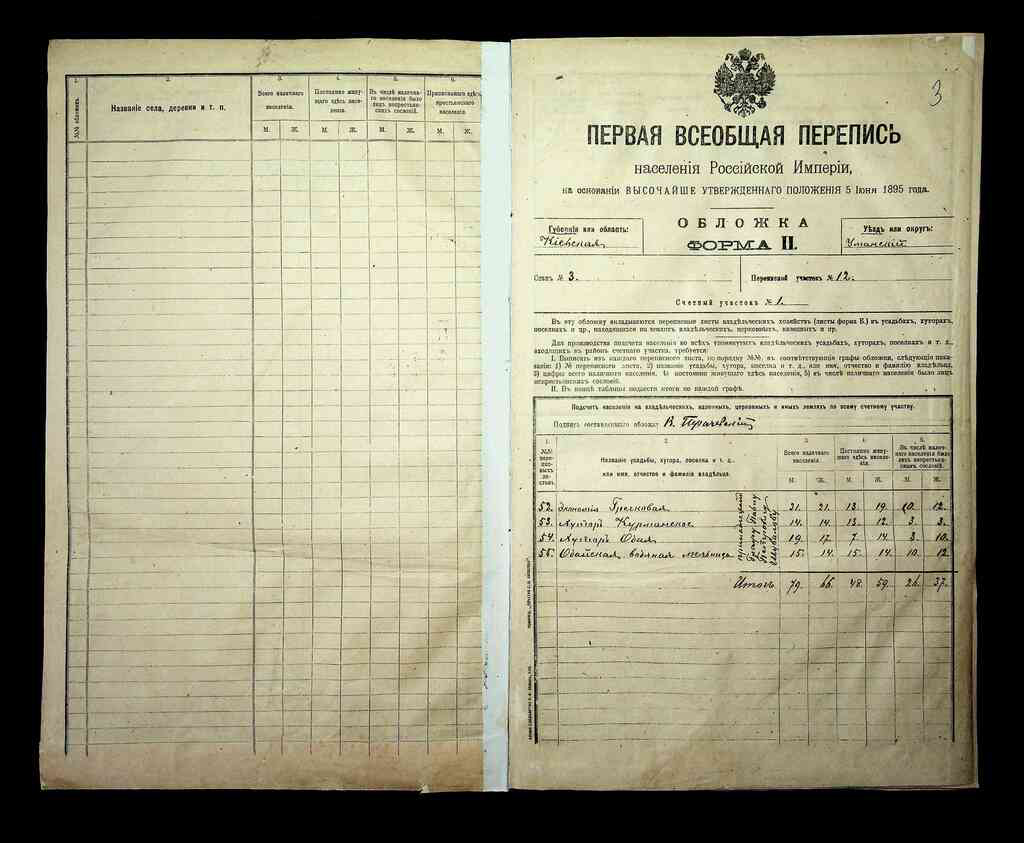 1.
2.
3.
4.
5.
6.
№№ обложекъ.
Названіе села, деревни и т. п.
Всего наличнаго
населенія.
Постоянно живу-
щаго здѣсь насе-
ленія.
Въ числѣ налична-
го населенія было
лицъ некрестьян-
скихъ сословій.
Приписаннаго здѣсь
крестьянскаго
населенія
М. Ж. М. Ж. М. Ж. М. Ж.
3
ПЕРВАЯ ВСЕОБЩАЯ ПЕРЕПИСЬ
населенія Россійской Имперіи,
на основаніи ВЫСОЧАЙШЕ УТВЕРЖДЕННАГО ПОЛОЖЕНІЯ 5 Іюня 1895 года.
Губернія или область:
Кіевская
ОБЛОЖКА
ФОРМА II.
Уѣздъ или округъ:
Уманскій
Станъ № 3.
Переписной участокъ № 12.
Счетный участокъ № 1.
Въ эту обложку вкладываются переписные листы владѣльческихъ хозяйствъ (листы форма Б.) въ усадьбахъ, хуторахъ,
поселкахъ и пр., находящихся на земляхъ владѣльческихъ, церковныхъ, казенныхъ и пр.
Для производства подсчета населенія во всѣхъ упомянутыхъ владѣльческихъ усадьбахъ, хуторахъ, поселкахъ и т. д.,
входящихъ въ районъ счетнаго участка, требуется:
I. Выписать изъ каждаго переписного листа, по порядку №№, въ соотвѣтствующія графы обложки, слѣдующія пока-
занія: 1) № переписного листа, 2) названіе усадьбы, хутора, поселка и т. д., или имя, отчество и фамилію владѣльца,
3) цифры всего наличнаго населенія, 4) постоянно живущаго здѣсь населенія, 5) въ числѣ наличнаго населенія было лицъ
некрестьянскихъ сословій.
II. Въ концѣ таблицы подвести итоги по каждой графѣ.
Подсчетъ населенія на владѣльческихъ, казенныхъ, церковныхъ и иныхъ земляхъ по всему счетному участку.
Подпись составлявшаго обложку В.
1.
2.
3.
4.
5.
№№
пере-
пис-
ныхъ
ли-
стовъ.
Названіе усадьбы, хутора, поселка и т. д.
или имя, отчество и фамилія владѣльца.
Всего наличнаго
населенія.
Постоянно живу-
щаго здѣсь населе-
нія.
Въ числѣ налич-
наго населенія было
лицъ некрестьян-
скихъ сословій.
М. Ж. М. Ж. М. Ж.
52. Экономія Грековая 31. 21. 13. 19. 10. 12.
53. Хуторъ Курманское 14. 14. 13. 12. 3. 3.
54. Хуторъ 19. 17. 7. 14. 3. 10.
55. Одайская водяная мельница 15. 14. 15. 14. 10. 12.
Графу Павлу
Петровичу
Шувалову
Итого 79. 66. 48. 59. 26. 37.